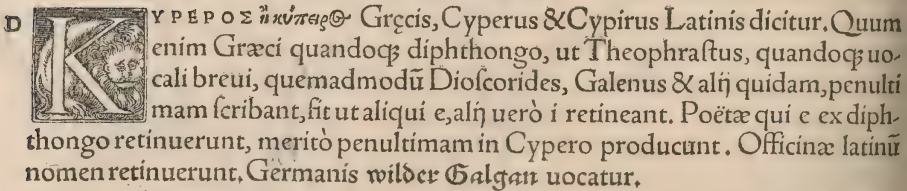 D KΥΡΕΡΟΣ ἢ κύπειρος Gręcis, Cyperus & Cypirus Latinis dicitur. Quum
enim Græci quandoq; diphthongo, ut Theophraſtus, quandoq; uo-
cali breui, quemadmodū Dioſcorides, Galenus & alij quidam, penulti
mam ſcribant, fit ut aliqui e, alij uerò i retineant. Poëtæ qui e ex diph-
thongo retinuerunt, meritò penultimam in Cypero producunt. Officinæ latinū
nomen retinuerunt, Germanis wilder Galgan uocatur.